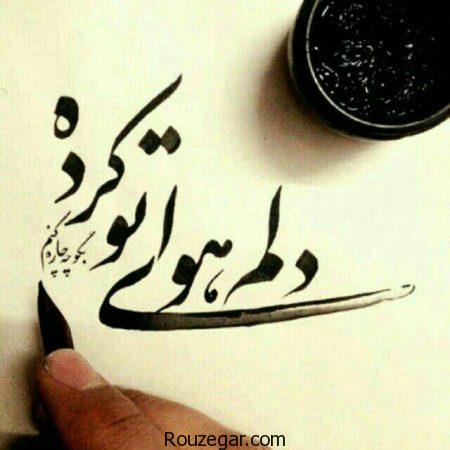 دلم هوای تو کرده
بگو چه چاره کنم
Rouzegar.com